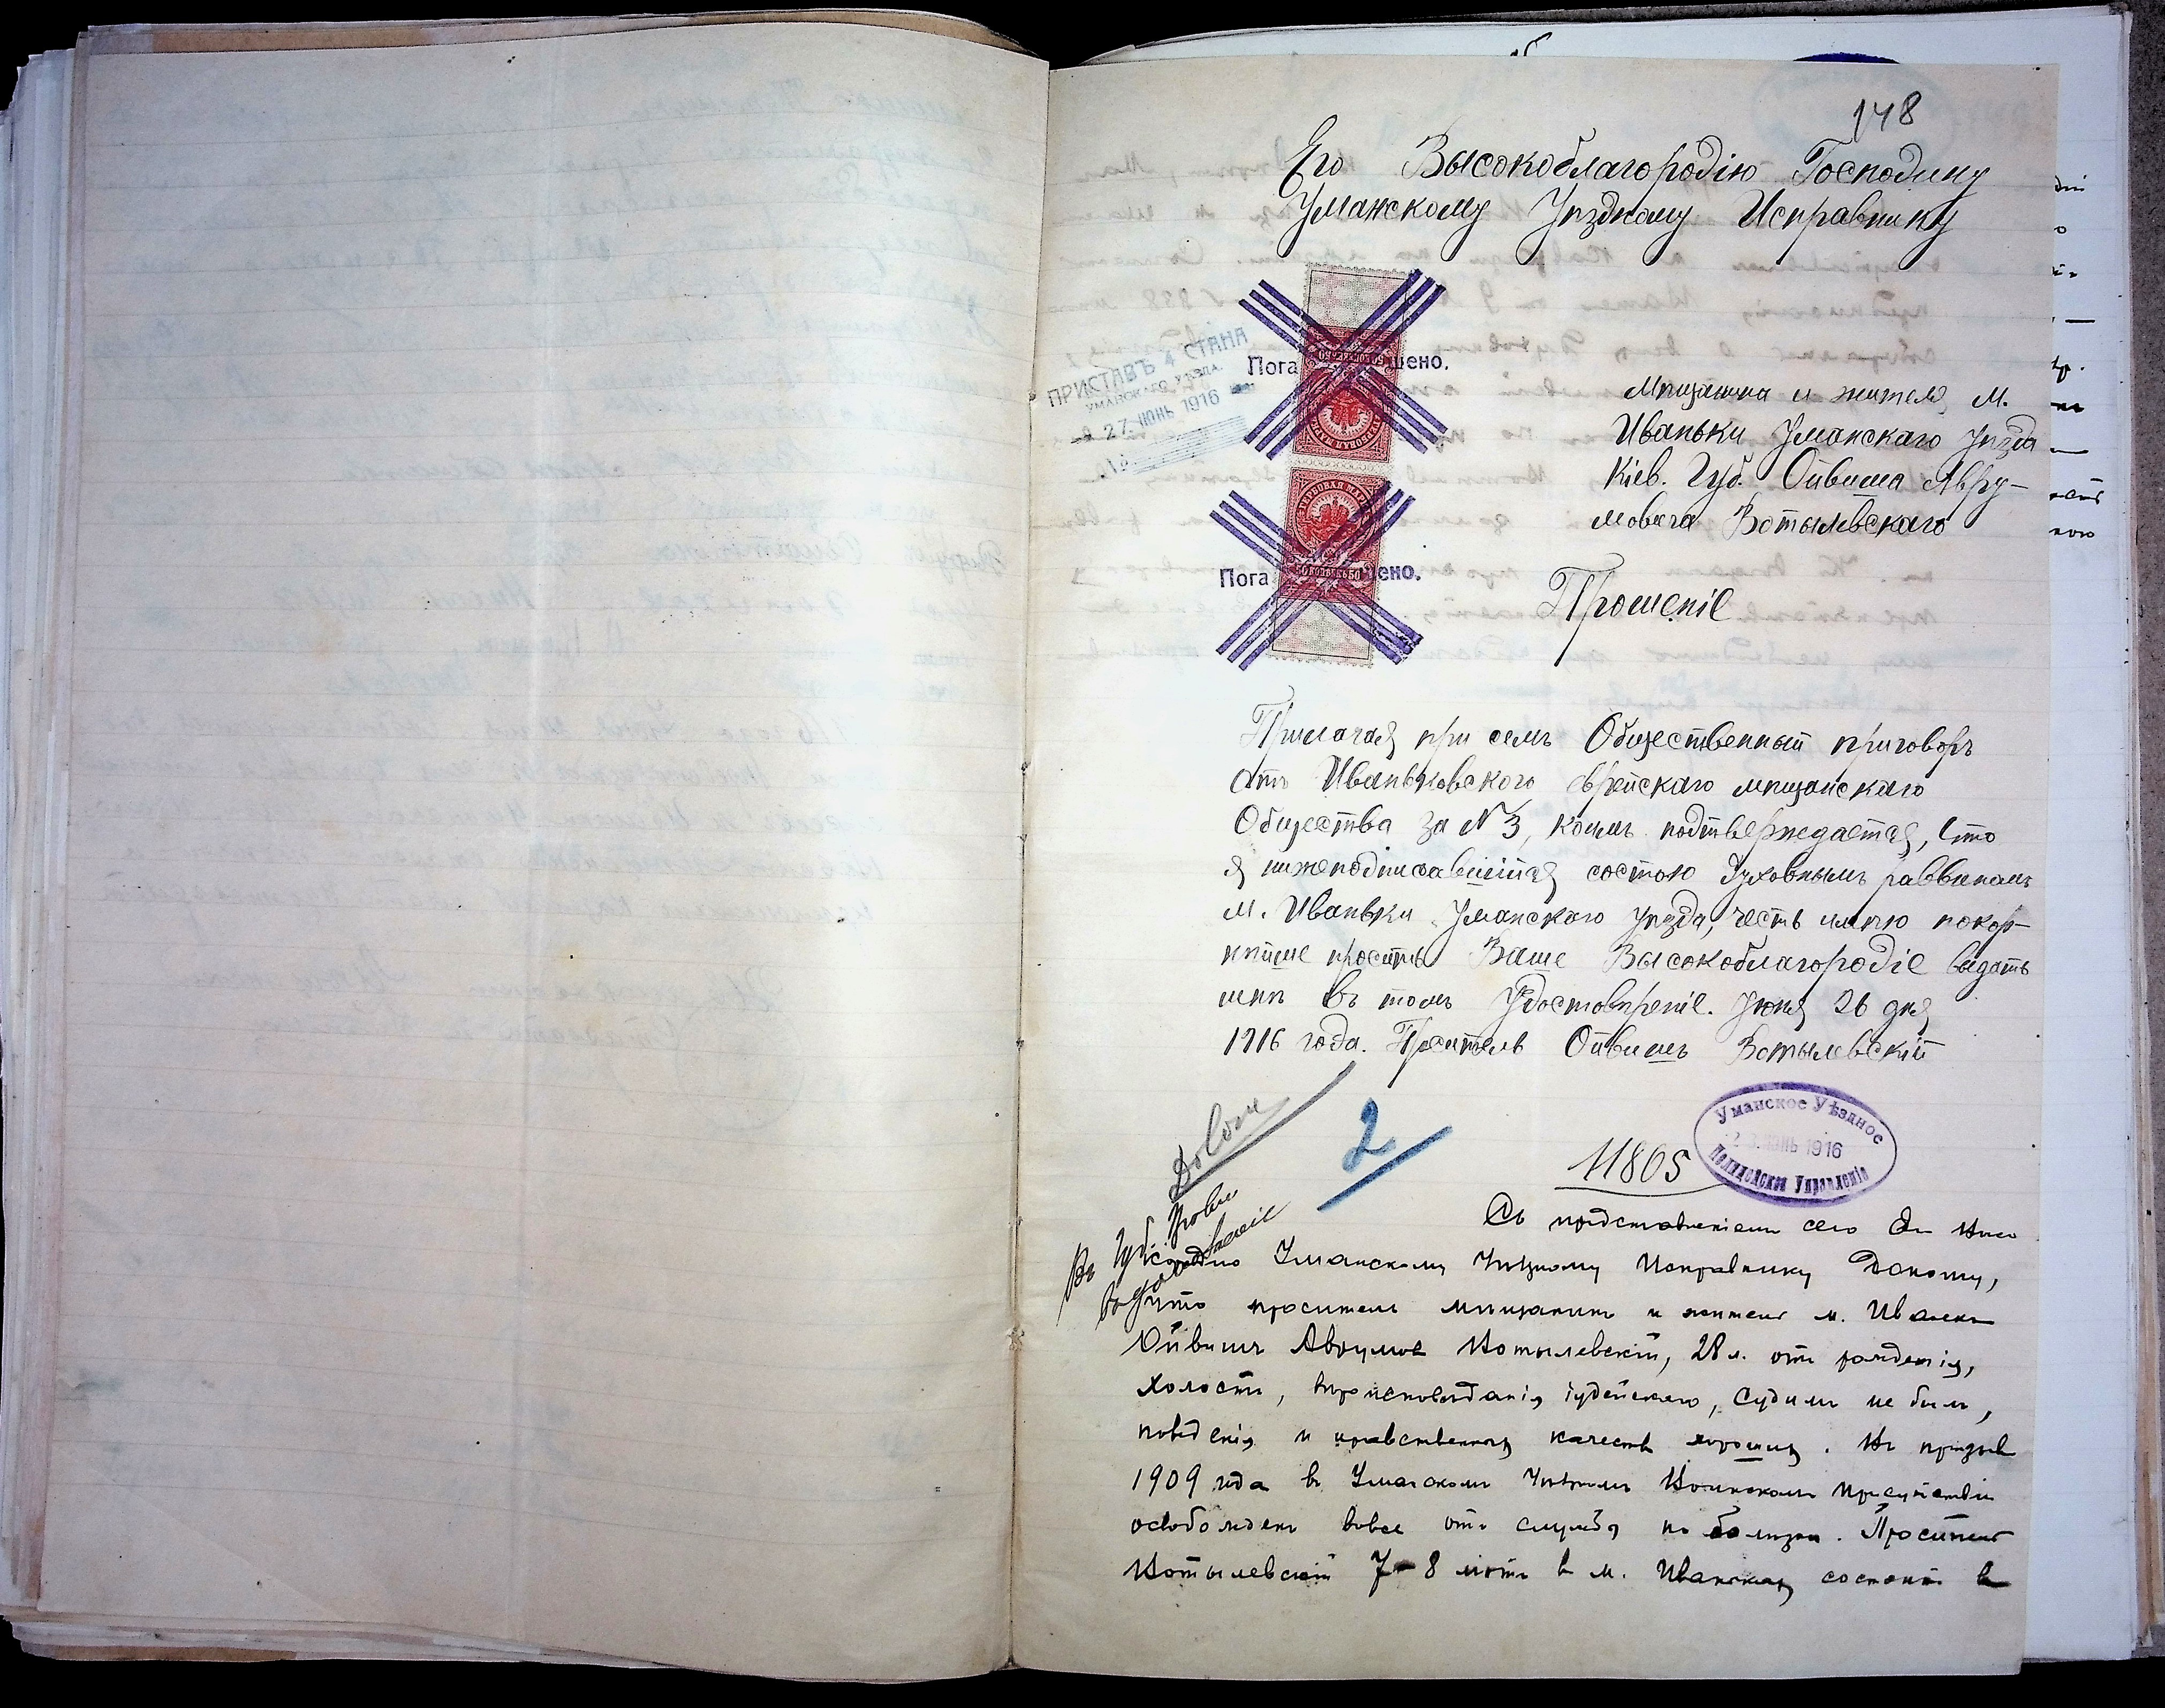 148
Его Высокоблагородію Господину
Уманскому Уѣздному Исправнику
Погашено.
ПРИСТАВЪ 4 СТАНА
УМАНСКАГО УѢЗДА.
27 ІЮНЬ 1916
Мѣщанина и жителя м.
Иваньки Уманскаго уѣзда
Кіев. Губ. Ойвиша Авру-
мовича Вотылевскаго
Погашено.
Прошеніе
Прилагая при семъ Общественный приговоръ
отъ Иваньковского еврейскаго мѣщанскаго
Общества за № 3, коимъ подтверждается, что
я нижеподписавшійся состою Духовнымъ раввиномъ
м. Иваньки Уманскаго уѣзда, честь имѣю покор-
нѣйше просить Ваше Высокоблагородіе выдать
мнѣ въ томъ Удостовѣреніе. Іюня 26 дня
1916 года. Проситель Ойвишъ Вотылевскій
2
11805
Уманское Уѣздное
ІЮНЬ 1916
Полицейское Управленіе
Въ Губ. Правленіе
Съ представленіемъ сего Его Высо
кородію Уманскому Уѣздному Исправнику Доношу,
что проситель мѣщанинъ и житель м. Иваньки
Ойвишъ Аврумов Котылевскій, 28 л. отъ рожденія,
холостъ, вѣроисповѣданія іудейскаго, судимъ не былъ,
поведенія и нравственныхъ качествъ хорошихъ. Въ призывъ
1909 года въ Уманскомъ Уѣздномъ Воинскомъ Присутствіи
освобожденъ вовсе отъ службы по болѣзни. Проситель
Котылевскій 7-8 лѣтъ въ м. Иванькахъ состоитъ въ